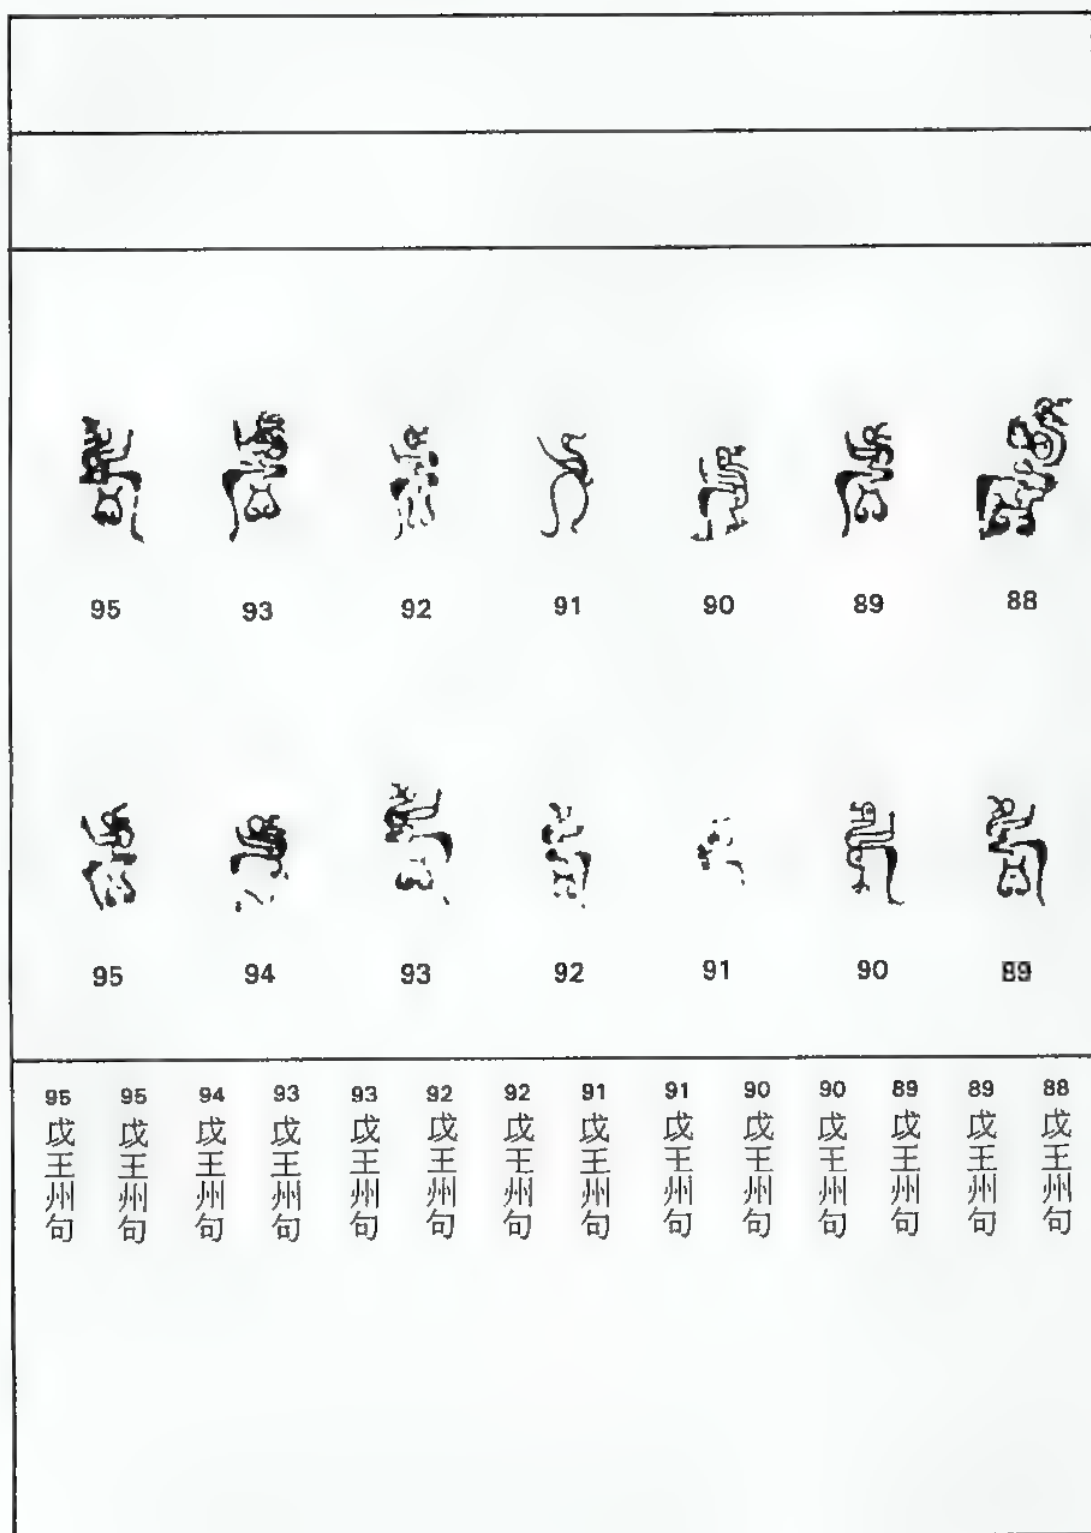 88
89
90
91
92
93
95
89
90
91
92
93
94
95
88 戉王州句
89 戉王州句
89 戉王州句
90 戉王州句
90 戉王州句
91 戉王州句
91 戉王州句
92 戉王州句
92 戉王州句
93 戉王州句
93 戉王州句
94 戉王州句
95 戉王州句
95 戉王州句